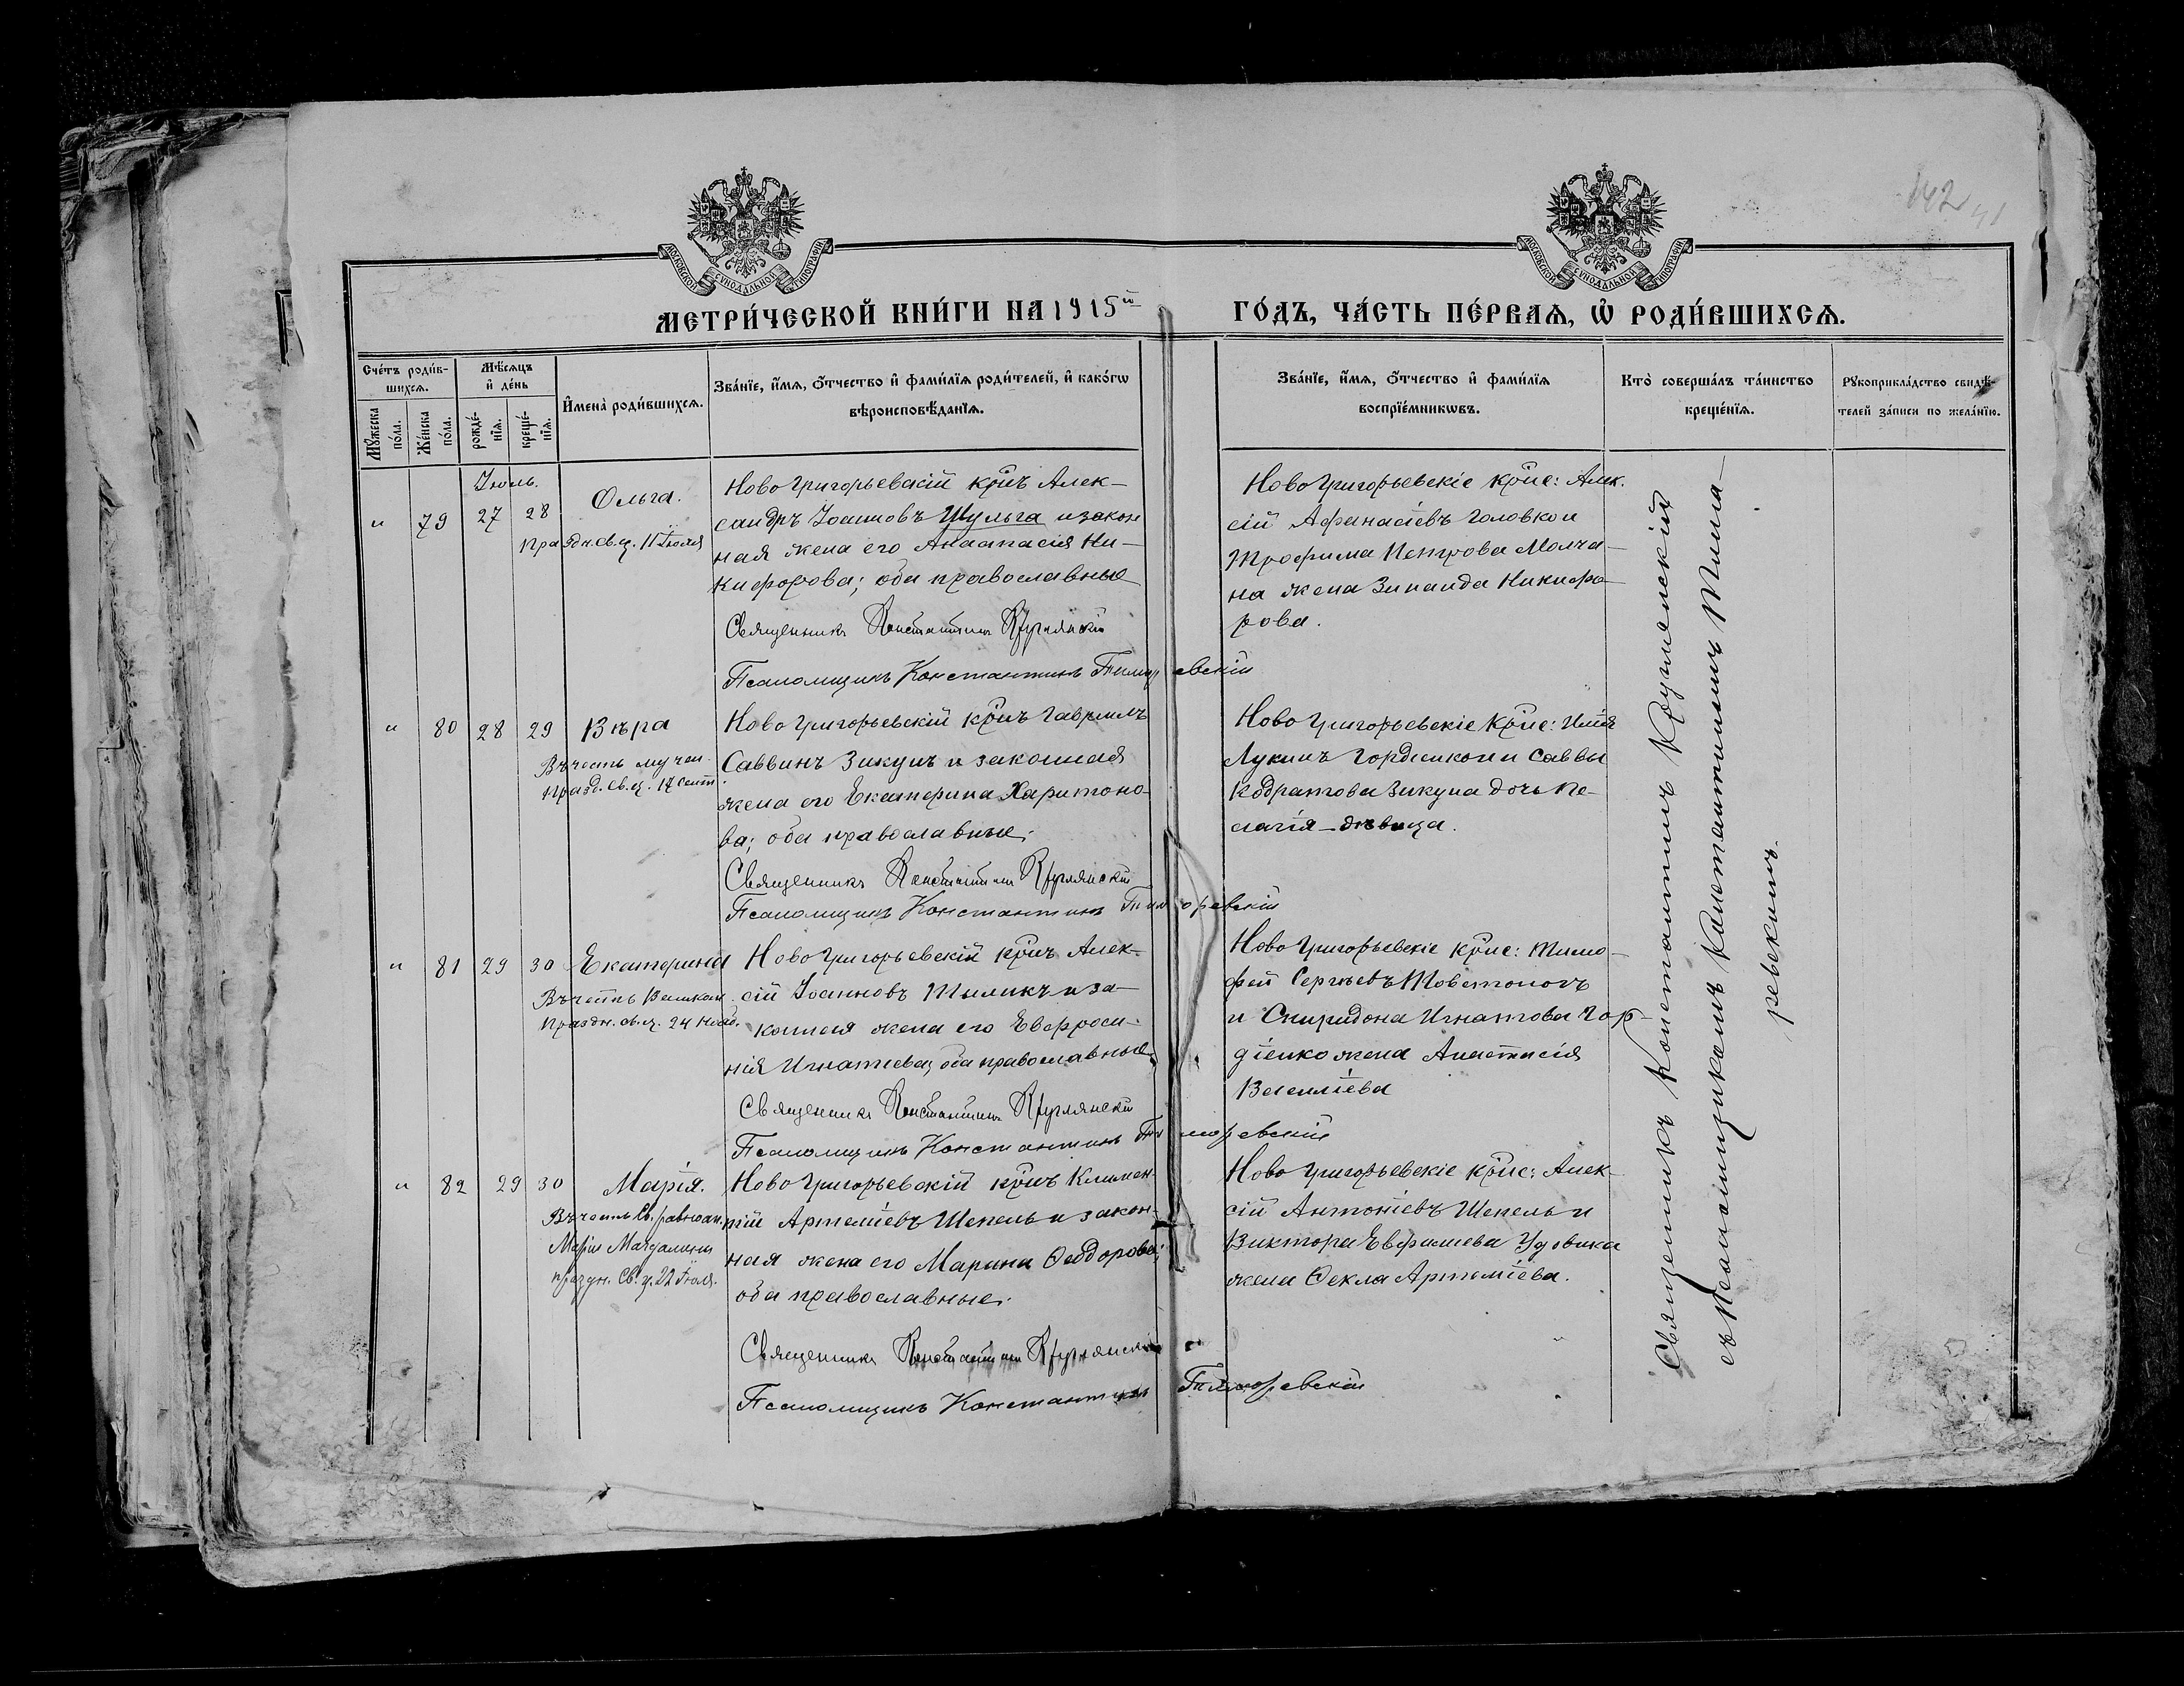 142
41
МОСКОВСКОЙ СѴНОДАЛЬНОЙ ТИПОГРАФІИ
МОСКОВСКОЙ СѴНОДАЛЬНОЙ ТИПОГРАФІИ
МЕТРИ́ЧЕСКОЙ КНИ́ГИ НА 1915й ГО́ДЪ, ЧА́СТЬ ПЕ́РВАѦ, Ѽ РОДИ́ВШИХСѦ.
Сче́тъ роди́в-
шихсѧ.
Мꙋ́жеска
по́ла.
Же́нска
по́ла.
Мѣ́сѧцъ
и҆ де́нь
рожде́-
нїѧ.
креще́-
нїѧ.
И҆мена̀ роди́вшихсѧ.
Зва́нїе, и҆́мѧ, ѻ҆́тчество и҆ фами́лїѧ роди́телей, и҆ како́гѡ
вѣроисповѣ́данїѧ.
Зва́нїе, и҆́мѧ, ѻ҆́тчество и҆ фами́лїѧ
воспрїе́мникѡвъ.
Кто̀ соверша́лъ та́инство
креще́нїѧ.
Рꙋкоприкла́дство свидѣ́-
телей за́писи по жела́нїю.
Іюль.
" 79 27 28 Ольга.
Праздн. св. ц. 11 Іюля
Ново Григорьевскій крнъ Алек-
сандръ Іоанновъ Шульга и закон
ная жена его Анастасія Ни-
кифорова; оба православные
Священникъ Константинъ Круглянскій
Псаломщикъ Константинъ Тиморевскій
Ново Григорьевскіе крне: Алек.
сій Афанасіевъ Головко и
Трофима Петрова Молча-
на жена Зинаида Никифо-
рова.
" 80 28 29 Вѣра
Въ честь мучен.
Празд. св. ц. 17 Сент.
Ново Григорьевскій крнъ Гавриилъ
Саввинъ Зикунъ и законная
жена его Екатерина Харитоно-
ва; оба православные.
Священникъ Константинъ Круглянскій
Псаломщикъ Константинъ Тиморевскій
Ново Григорьевскіе крне: Илія
Лукинъ Гордиенко и Саввы
Кодратова Зикуна дочь Пе-
лагія - дѣвица.
" 81 29 30 Екатерина
Въ честь Великом.
Праздн. св. ц. 24 Нояб.
Ново Григорьевскій крнъ Алек-
сій Іоанновъ и за-
конная жена его Евфроси-
нія Игнатіева; оба православные.
Священникъ Константинъ Круглянскій
Псаломщикъ Константинъ Тиморевскій
Ново Григорьевскіе крне: Тимо-
фей Сергѣевъ Товстоногъ
и Спиридона Игнатова Гор-
діенко жена Анастасія
Василіева
" 82 29 30 Марія.
Въ честь Св. равноап.
Маріи Магдалины
праздн. Св. ц. 22 Іюля.
Ново Григорьевскій крнъ Климен-
тій Артеміевъ Шепель и закон-
ная жена его Марина Ѳеодорова;
оба православные.
Священникъ Константинъ Круглянскій
Псаломщикъ Константинъ Тиморевскій
Ново Григорьевскіе крне: Алек-
сій Антоніевъ Шепель и
Виктора Евфимиева Удовика
жена Ѳекла Артеміева.
Священникъ Константинъ Круглянскій
съ Псаломщикомъ Константиномъ Тимо-
ревскимъ.